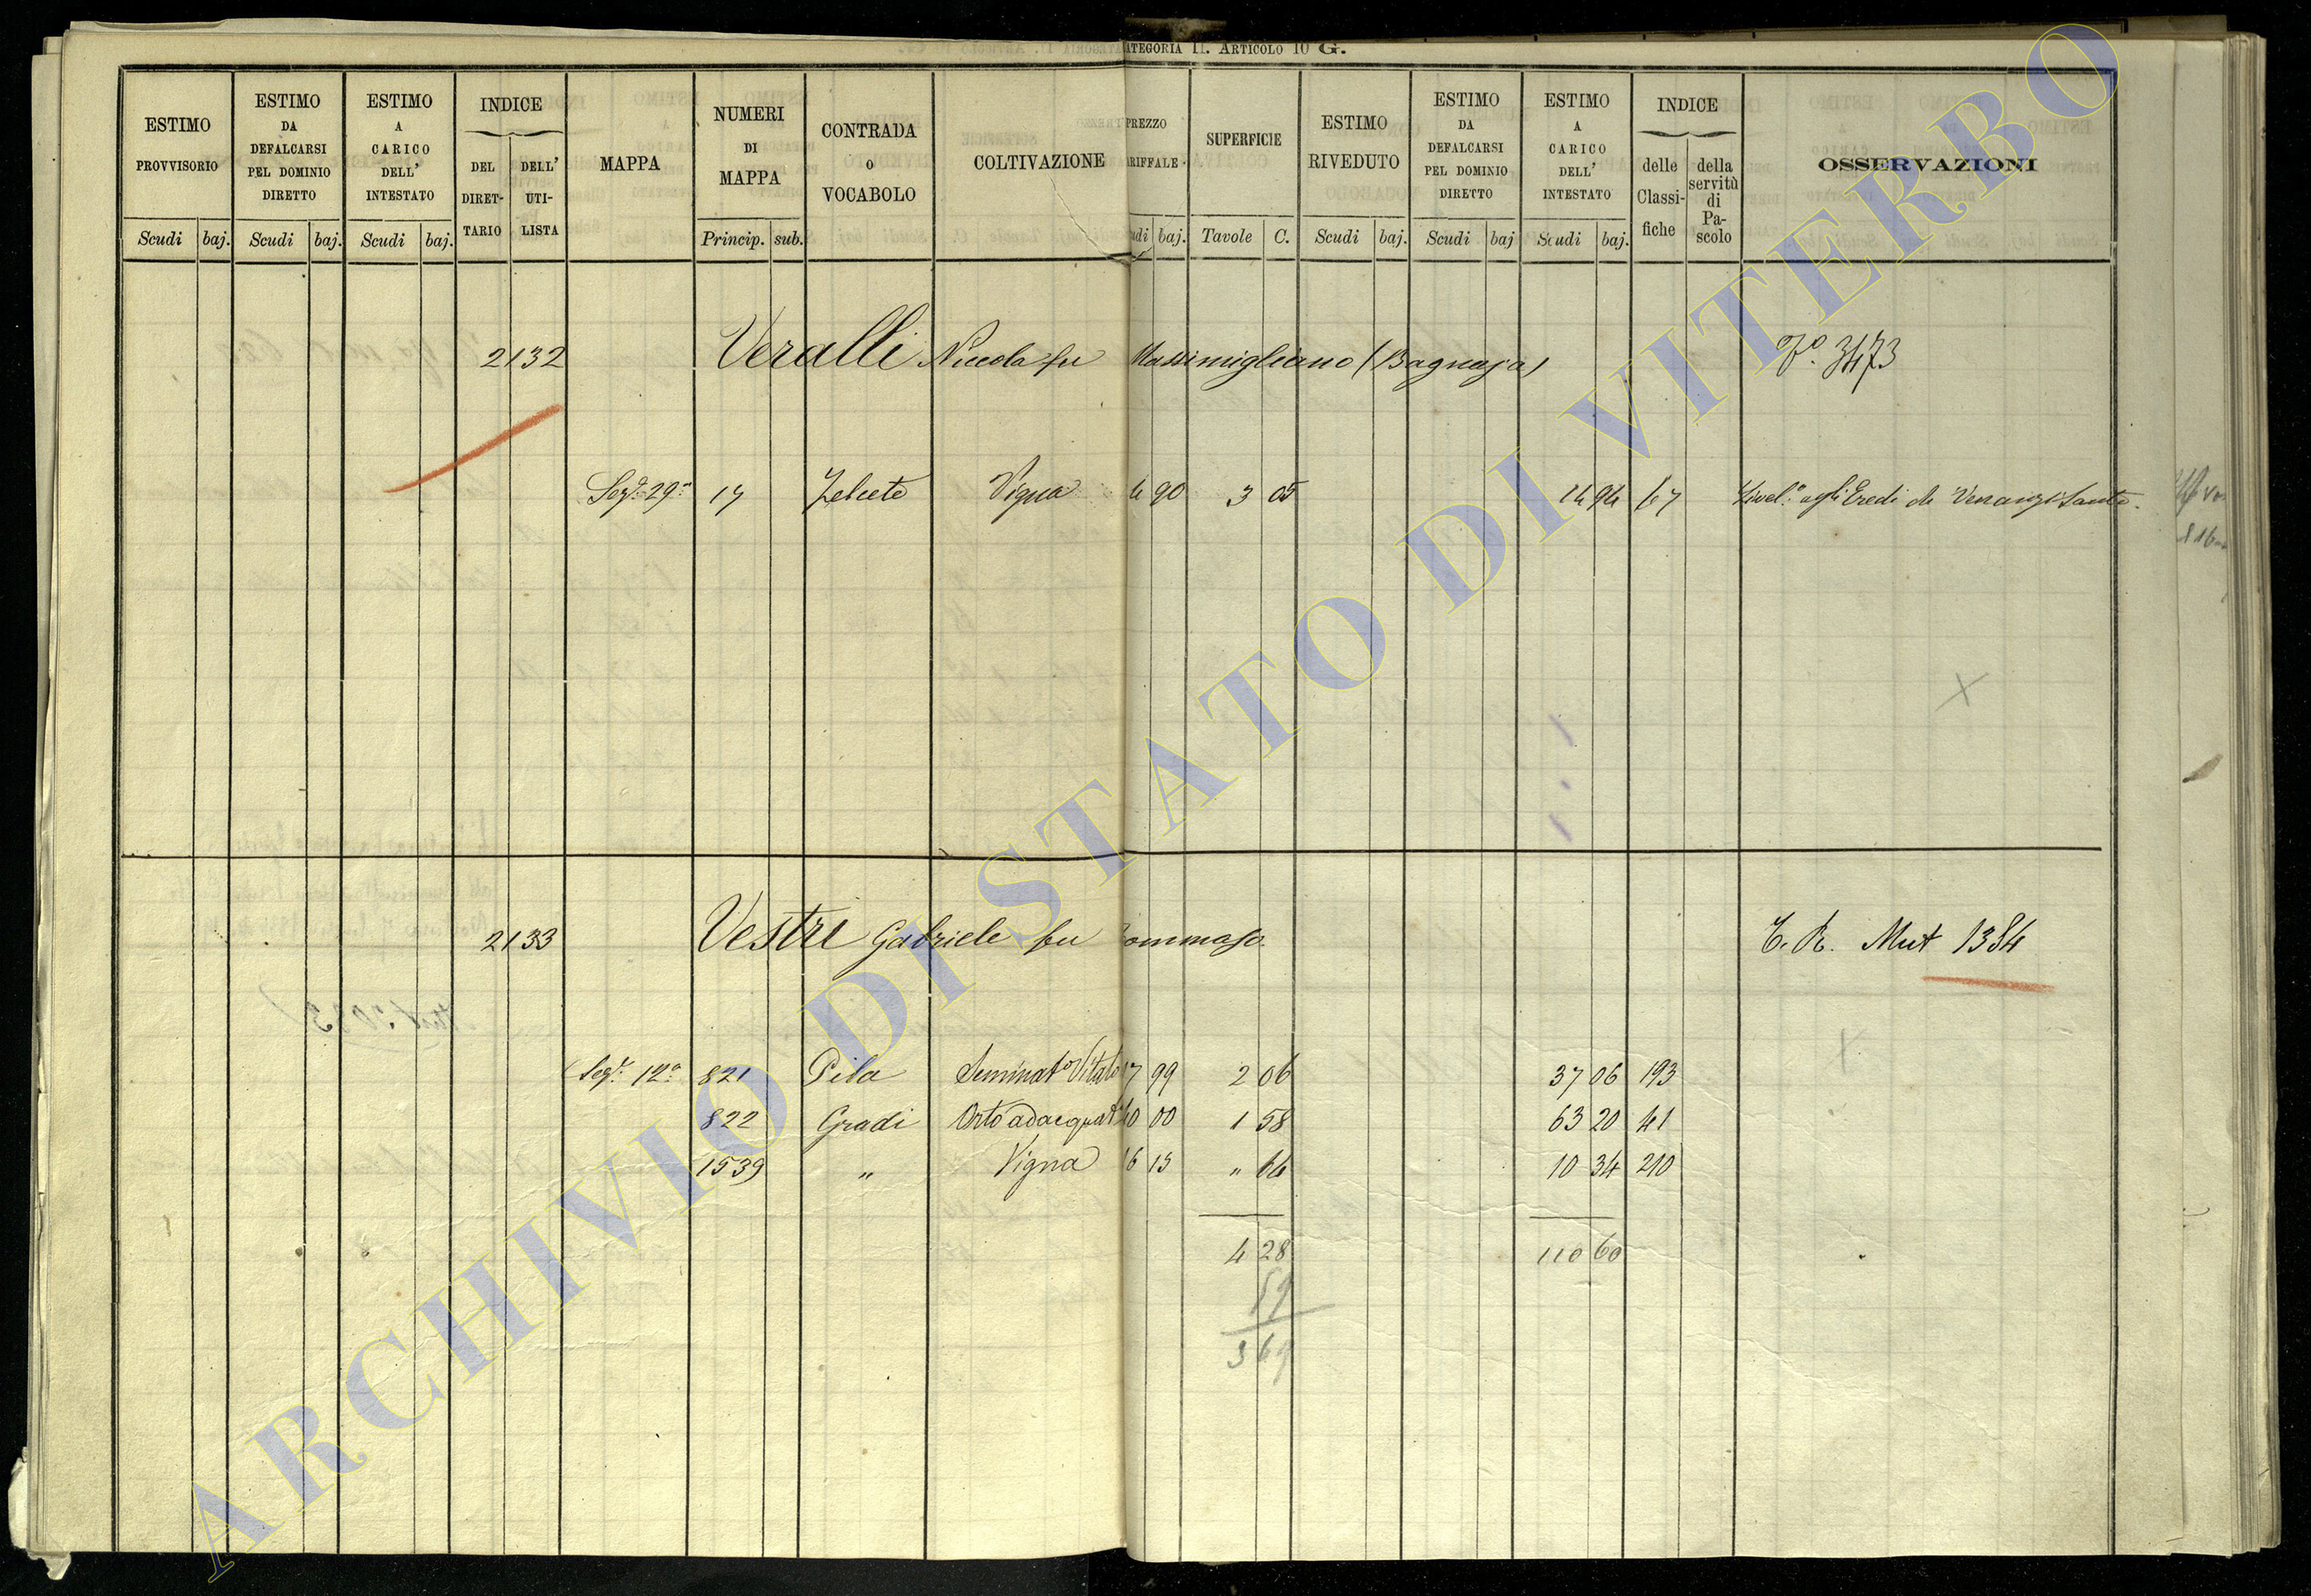 ATEGORIA II. ARTICOLO 10 G.
ESTIMO PROVVISORIO
ESTIMO DA DEFALCARSI PEL DOMINIO DIRETTO
ESTIMO A CARICO DELL' INTESTATO
INDICE
DEL DIRET-TARIO
DELL' UTI-LISTA
MAPPA
NUMERI DI MAPPA
CONTRADA O VOCABOLO
COLTIVAZIONE
PREZZO ARIFFALE
SUPERFICIE
ESTIMO RIVEDUTO
ESTIMO DA DEFALCARSI PEL DOMINIO DIRETTO
ESTIMO A CARICO DELL' INTESTATO
INDICE
delle Classi-fiche
della servitù di Pa-scolo
OSSERVAZIONI
Scudi baj. Scudi baj. Scudi baj. Princip. sub. udi baj. Tavole C. Scudi baj. Scudi baj Scudi baj.
2132 Veralli Niccola fu Massimigliano (Bagnaja) Fo. 3473
Seze. 29a 17 Vigna 4 90 3 05 14 94 67 Livelo. agli Eredi di Venanzi Santo.
2133 Vestri Gabriele fu Tommaso. C. R. Mut 1384
Seze. 12a 821 Pila Seminato Vitato 17 99 2 06 37 06 193
822 Gradi Orto adacquato 40 00 1 58 63 20 41
1539 " Vigna 16 15 " 64 10 34 210
4 28 110 60
59
3 69
ARCHIVIO DI STATO DI VITERBO